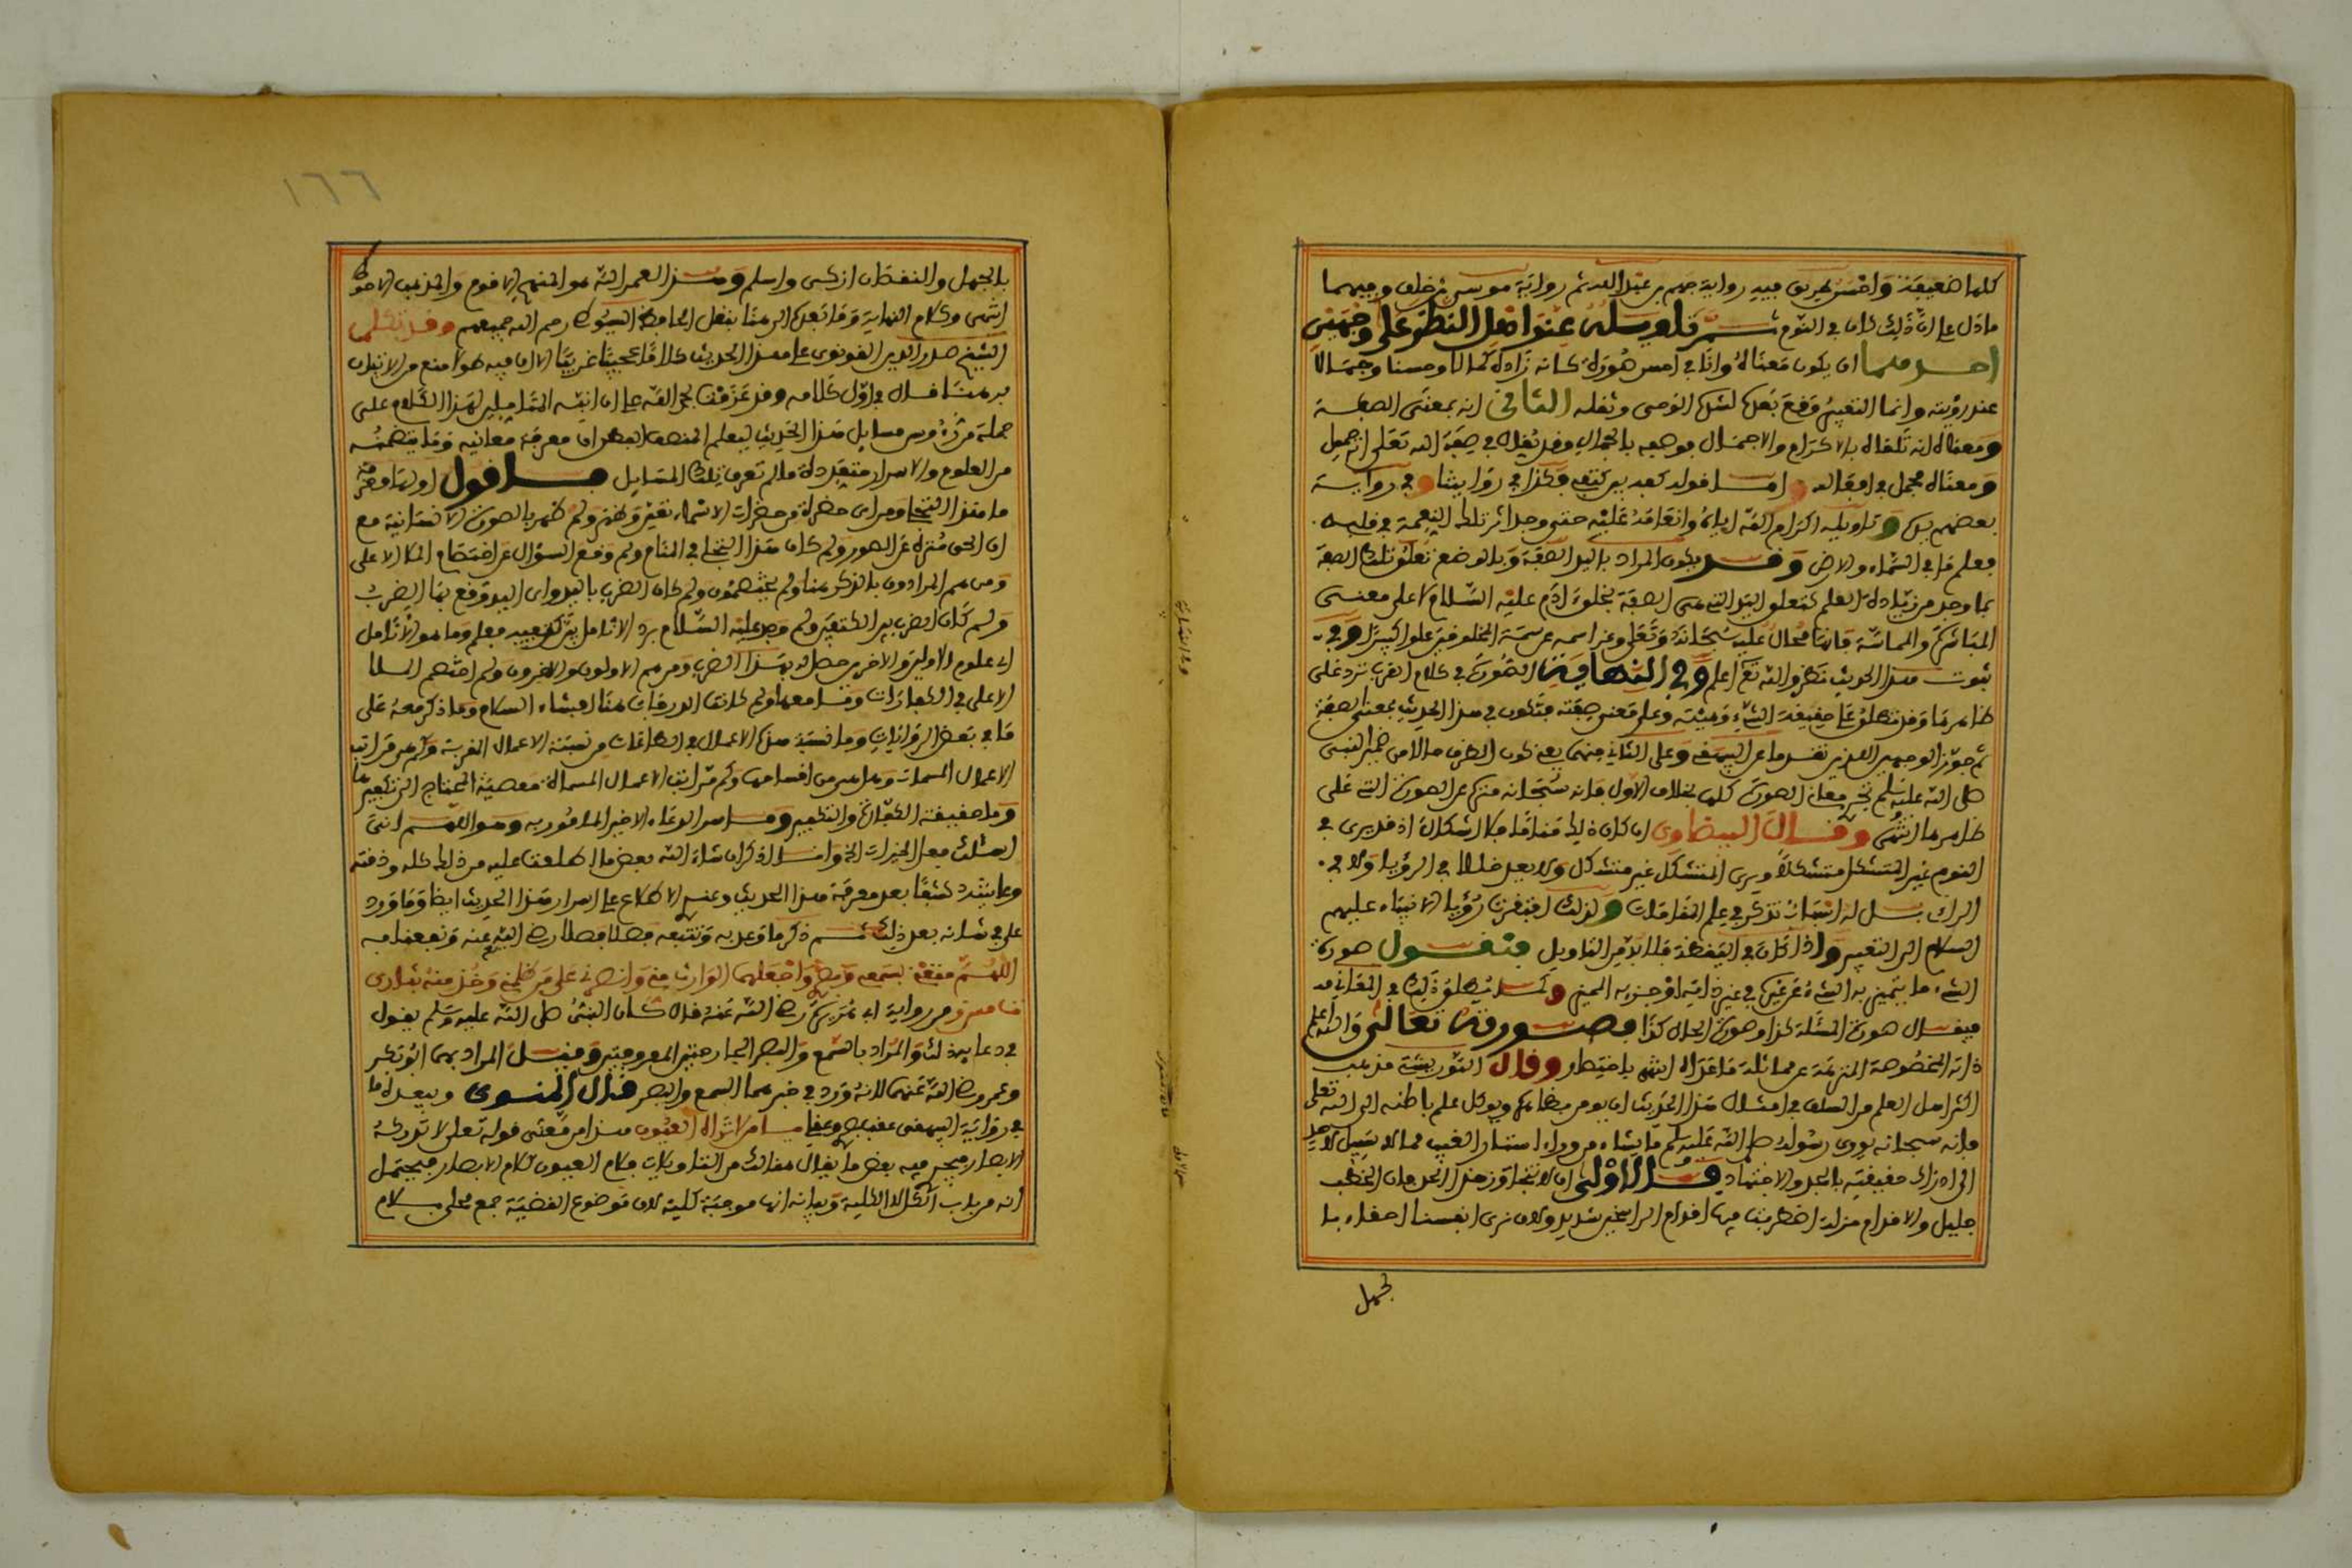 كلها ضعيفة واحسن طريق فيه رواية جهم بن عبد الله ثم رواية موسى بن خلف وفيهما
ما دل على ان ذلك كان في النوم ثم تاويله عند اهل النظر على وجهين
احدهما ان يكون معناه وانا في احسن صورة كانه زاده كمالا وحسنا وجمالا
عند رؤيته وانما التغيير وقع بعدها لشدة الوحي وثقله الثاني انه بمعنى الصفة
ومعناه انه تلقاه بالاكرام والاجمال فوصفه بالجمال وقد يقال في صفة الله تعلى انه جميل
ومعناه مجمل في افعاله واما قوله كفه بين كتفي فكذا في روايتنا وفي رواية
بعضهم يده وتاويله اكرام الله اياه وانعامه عليه حتى وجد اثر تلك النعمة في قلبه
فعلم ما في السماء والارض وقد يكون المراد باليد الصفة وبالوضع تعلق تلك الصفة
بما وجد من زيادة العلم كتعلق اليد التي هي الصفة بخلق ادم عليه السلام لا على معنى
المباشرة والمماسة فانها محال عليه سبحانه وتعلى وعز اسمه عن سمة المخلوقين علوا كبيرا وفي
ثبوت هذا الحديث نظر والله تع اعلم وفي النهاية الصورة في كلام العرب ترد على
ظاهرها وقد تطلق على حقيقة الشيء وهيئته وعلى معنى صفته فتكون في هذا الحديث بمعنى الصفة
ثم جوز الوجهين اللذين تقدما عن البيهقي وعلى الثاني منهما يعني كون الظرف حالا من ضمير النبي
صلى الله عليه وسلم تجري معاني الصورة كلها بخلاف الاول فانه سبحانه منزه عن الصورة التي على
ظاهرها انتهى وقال البيضاوي ان كان ذلك مناما فلا اشكال اذ قد يرى في
النوم غير المتشكل متشكلا ويرى المتشكل غير متشكل ولا يعد خللا في الرؤيا ولا في
الراي بل له اسباب تذكر في علم المقامات ولذلك افتقرت رؤيا الانبياء عليهم
السلام الى التعبير واذا كان في اليقظة فلا بد من التاويل فنقول صورة
الشيء ما يتميز به الشيء عن غيره في عين ذاته او جزئه المميز وكما يطلق ذلك في المعاني
فيقال صورة المسئلة كذا وصورة الحال كذا فصورته تعالى والله اعلم
ذاته المخصوصة المنزهة عن مماثلة ما عداه انتهى باختصار وقال التوربشتي مذهب
اكثر اهل العلم من السلف في امثال هذا الحديث ان يومن بظاهره ويوكل علم باطنه الى الله تعلى
فانه سبحانه يوري رسوله صلى الله عليه وسلم ما يشاء من وراء استار الغيب مما لا سبيل لاحد
الى ادراك حقيقته بالجد والاجتهاد قال الاولى ان لا نتجاوز هذا الحد فان الخطب
جليل والاقدام منزلة اضطربت فيها اقدام الراسخين شديد ولان نرى انفسنا احقاء با
لجهل
١٦٦
بالجهل والنقصان ازكى واسلم وهذا لعمر الله هو المنهج الاقوم والمذهب الاحوط
انتهى وكلام النهاية وما بعده الى هنا بنقل الحافظ السيوطي رحم الله جميعهم وقد تكلم
الشيخ صدر الدين القونوي على هذا الحديث كلاما عجيبا غريبا الا ان فيه طولا منع من الاتيان
به هنا قال في اول كلامه وقد عزمت بحمد الله على ان انبه المتاهلين لهذا الكلام على
جملة من رءوس مسايل هذا الحديث ليعلم المنصف الفطن ان معرفة معانيه وما يتضمنه
من العلوم والاسرار متعددة ما لم تعرف تلك المسايل فاقول اولها معرفة
ما هذا التجلي ومن اي حضرة من حضرات الاسماء تعين وظهر ولم ظهر بالصورة الانسانية مع
ان الحق منزه عن الصور ولم كان هذا التجلي في المنام ولم وقع السؤال عن اختصام الملا الاعلى
ومن هم المرادون بالذكر هنا ولم يختصمون ولم كان الضرب باليد واي اليد وقع بها الضرب
ولم كان الضرب بين الكتفين ولم وجد عليه السلام برد الانامل بين ثدييه فعلم وما هو الانامل
اي علوم الاولين والاخرين حصل له بهذا الضرب ومن هم الاولون والاخرون ولم اختصم الملا
الاعلى في الكفارات وما معناها ولم كانت الدرجات هنا افشاء السلام وما ذكر معه على
ما في بعض الروايات وما نسبة هذه الاعمال والطاعات من نسبة الاعمال الغريبة وكم هي مراتب
الاعمال المسمات وما هي من اقسامها وكم مراتب الاعمال المسماة معصية المحتاج الى تكفيرها
وما حقيقة الكفارة والتكفير وما سر الدعاء الاخير المامور به وهو اللهم اني
اسئلك فعل الخيرات الخ وانا اذكر ان شاء الله بعض ما اطلعت عليه من ذلك كله وذقته
وعاينته كشفا بعد معرفة هذا الحديث وعند الاطلاع على اسرار هذا الحديث ايضا وما ورد
علي في شانه بعد ذلك ثم ذكر ما وعد به وتتبعه فصلا فصلا رضي الله عنه ونفعنا به
اللهم متعني بسمعي وبصري واجعلهما الوارث مني وانصرني على من ظلمني وخذ منه بثاري
من رواية ابي هريرة رضي الله عنه قال كان النبي صلى الله عليه وسلم يقول
في دعايه ذلك والمراد بالسمع والبصر الجارحتين المعروفتين وقيل المراد بهما ابو بكر
وعمر رضي الله عنهما لانه ورد في خبر هما السمع والبصر قال المنوي ويبعده ما
في رواية البيهقي عقب وبصري
الابصار فيجري فيه بعض ما يقال هنالك من التاويلات فلام العيون كلام الابصار فيحتمل
انه من باب الكل لا الكلية وبيانه انها موجبة كلية لان موضوع القضية جمع محلى بلام